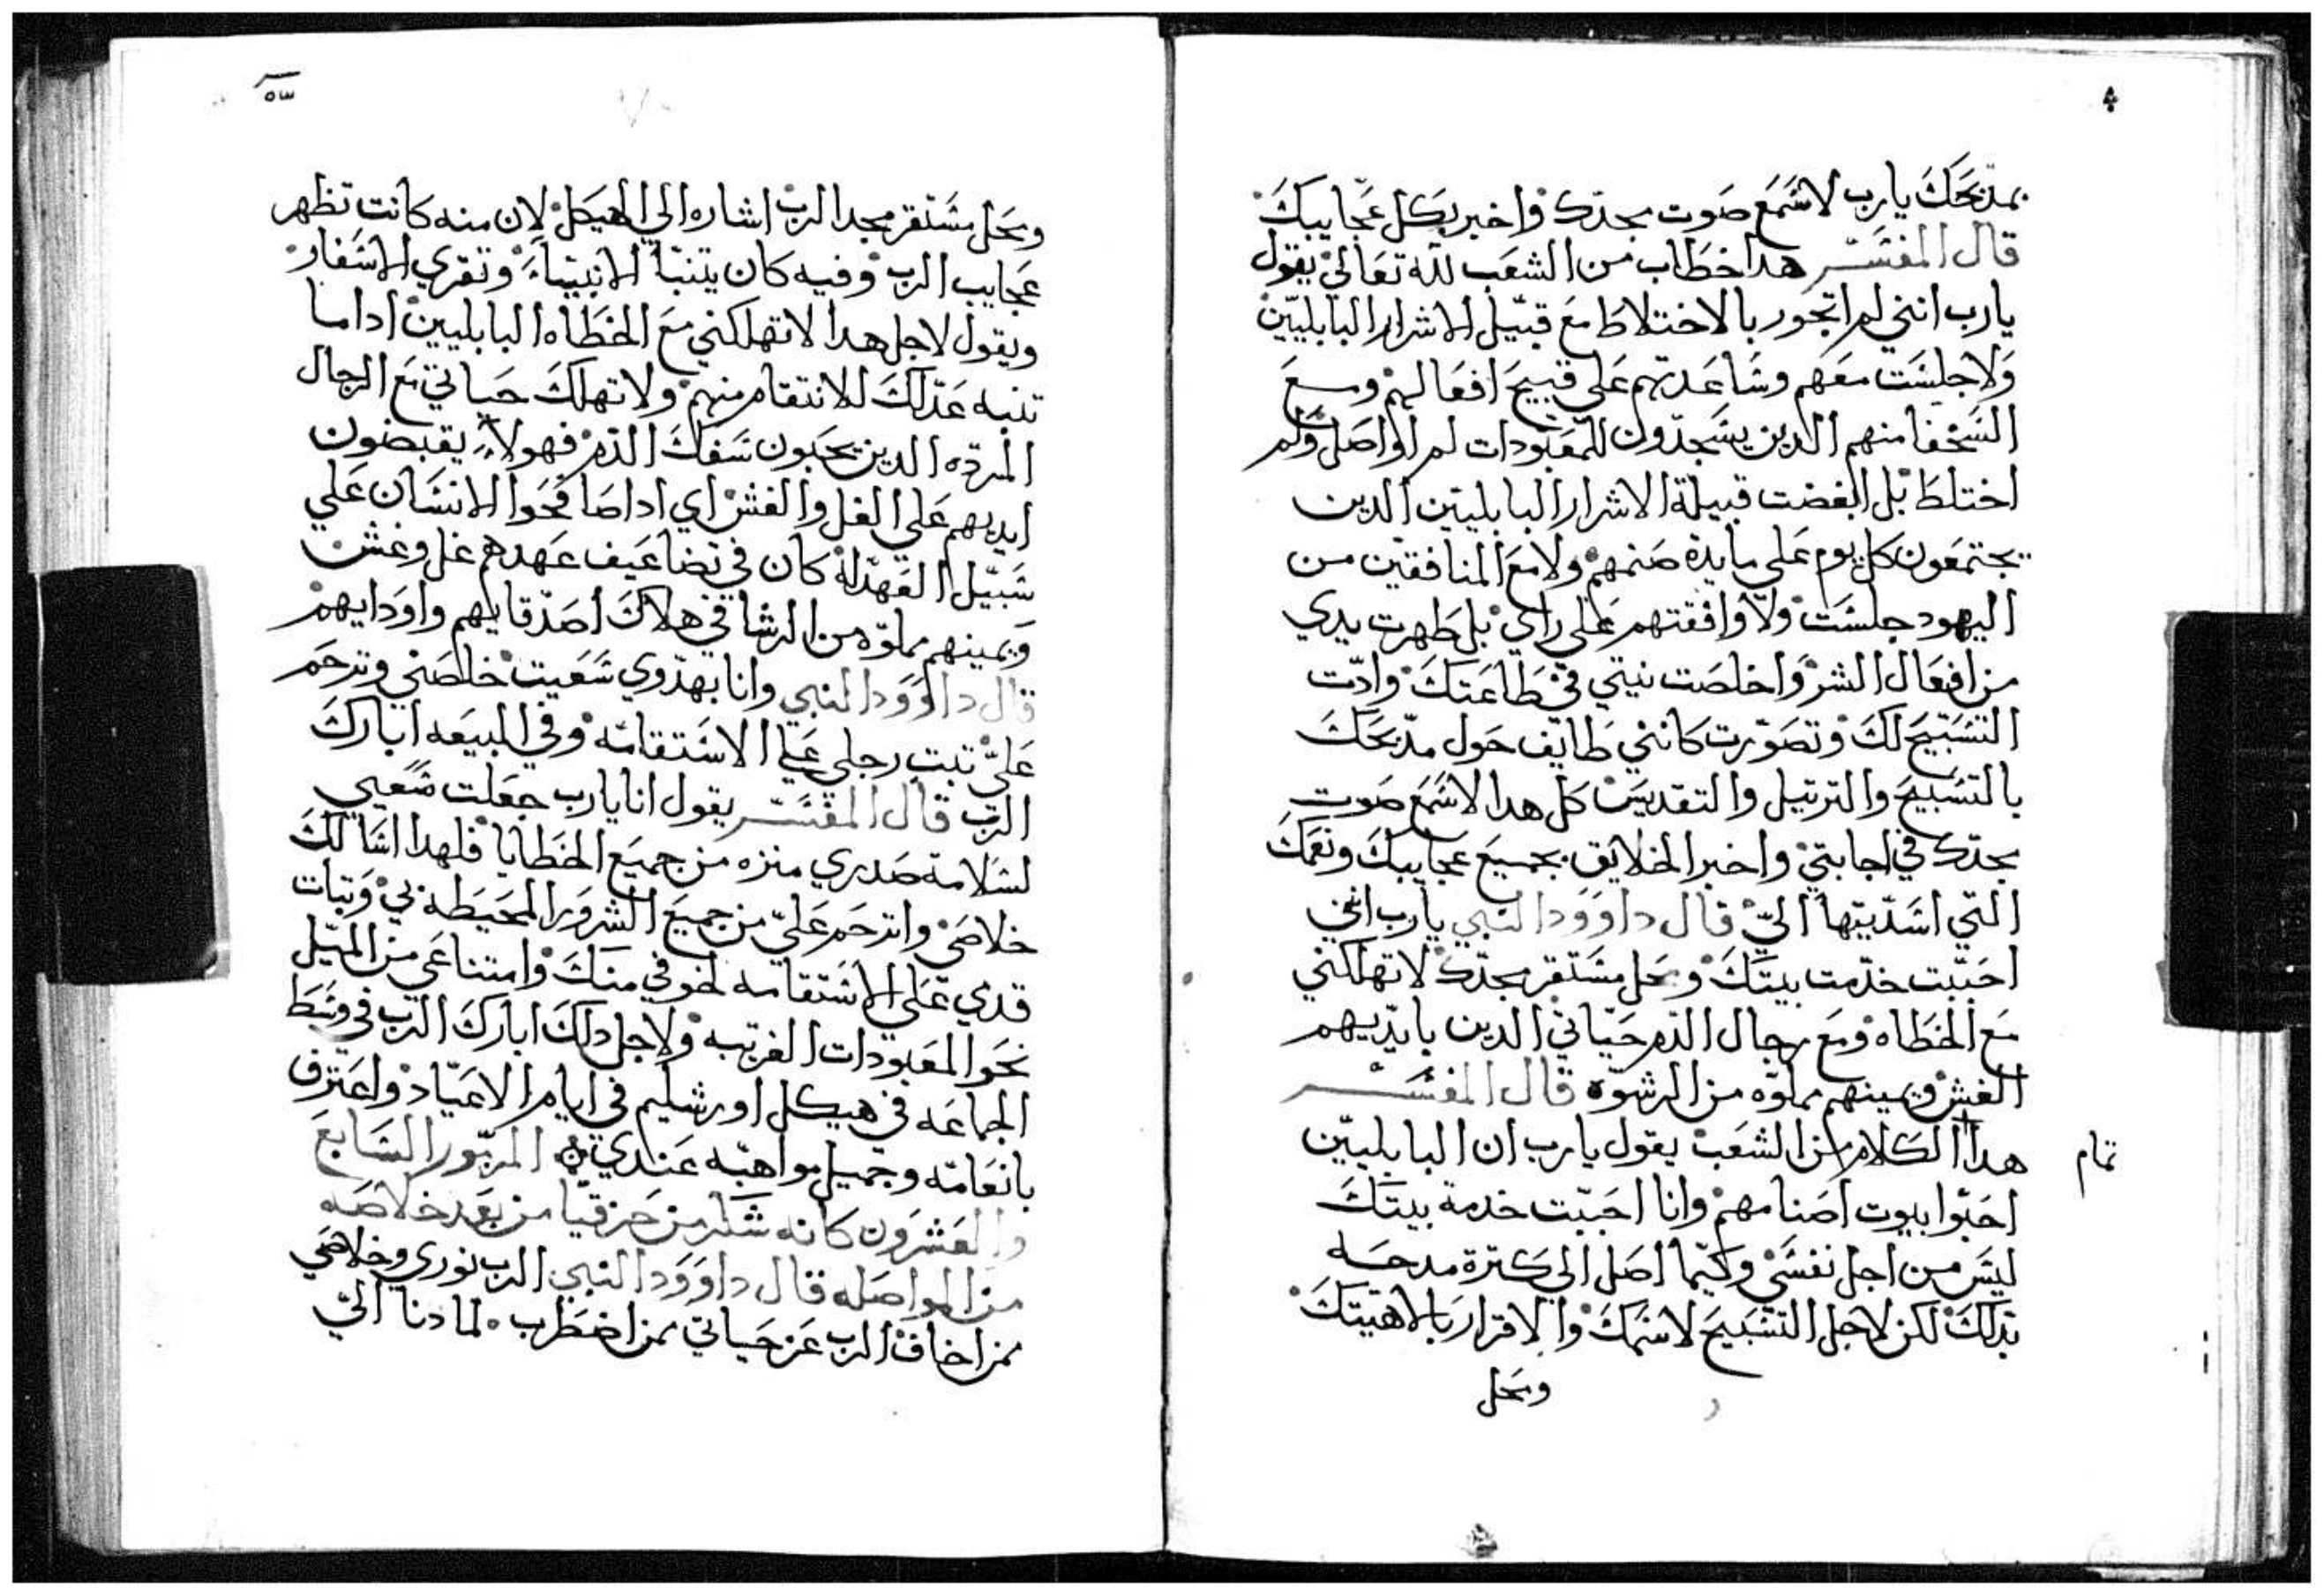 بمدبحك يارب لاسمع صوت مجدك واخبر بكل عجايبك
قال المفسر هدا خطاب من الشعب لله تعالي يقول
يارب انني لم اتجور بالاختلاط مع قبيل الاشرار البابليين
ولا جلست معهم وساعدتهم علي قبيح افعالهم ومع
السخفا منهم الدين يسجدون للمعبودات لم اواصل ولم
اختلط بل ابغضت قبيلة الاشرار البابليين الدين
يجتمعون كل يوم علي مايدة صنمهم ولا مع المنافقين من
اليهود جلست ولا وافقتهم علي راي بل طهرت يدي
من افعال الشر واخلصت نيتي في طاعتك وادت
التسبيح لك وتصورت كانني طايف حول مدبحك
بالتسبيح والترتيل والتقديس كل هدا لاسمع صوت
مجدك في اجابتي واخبر الخلايق بجميع عجايبك ونعمك
التي اسديتها الي قال داوود النبي يارب انني
احببت خدمت بيتك ومحل مستقر مجدك لا تهلكني
مع الخطاه ومع رجال الدم حياتي الدين بايديهم
الغش ويمينهم مملوه من الرشوه قال المفسر
هدا الكلام من الشعب يقول يارب ان البابليين
تمام
احبوا بيوت اصنامهم وانا احببت خدمة بيتك
ليس من اجل نفسي وكيما اصل الي كترة مدحسه
بدلك لكن لاجل التسبيح لاسمك والاقرار بالاهيتك
ومحل
٥٣
ومحل مستقر مجد الرب اشاره الي الهيكل لان منه كانت تظهر
عجايب الرب وفيه كان يتنبا الانبياء وتقري الاسفار
ويقول لاجل هدا لا تهلكني مع الخطاه البابليين ادا ما
تنبه عدلك للانتقام منهم ولا تهلك حياتي مع الرجال
المرده الدين يحبون سفك الدم فهولاء يقبضون
ايديهم علي الغل والغش اي ادا صافحوا الانسان علي
سبيل العهدله كان في تضاعيف عهدهم غل وغش
ويمينهم مملوه من الرشا في هلاك اصدقايهم واودايهم
قال داوود النبي وانا بهدوي سعيت خلصني وترحم
علي تبت رجلي علي الاستقامه وفي البيعه ابارك
الرب قال المفسر يقول انا يارب جعلت سعيي
لسلامة صدري منزه من جميع الخطايا فلهدا اسالك
خلاصي واترحم علي من جميع الشرور المحيطه بي وتبات
قدمي علي الاستقامه لخوفي منك وامتناعي من الميل
نحو المعبودات الغريبه ولاجل دلك ابارك الرب في وسط
الجماعه في هيكل اورشليم في ايام الاعياد واعترف
بانعامه وجميل مواهبه عندي المزمور السابع
والعشرون كانه شكر من حزقيا من بعد خلاصه
من المواصله قال داوود النبي الرب نوري وخلاصي
ممن اخاف الرب عز حياتي ممن اضطرب لما دنا الي